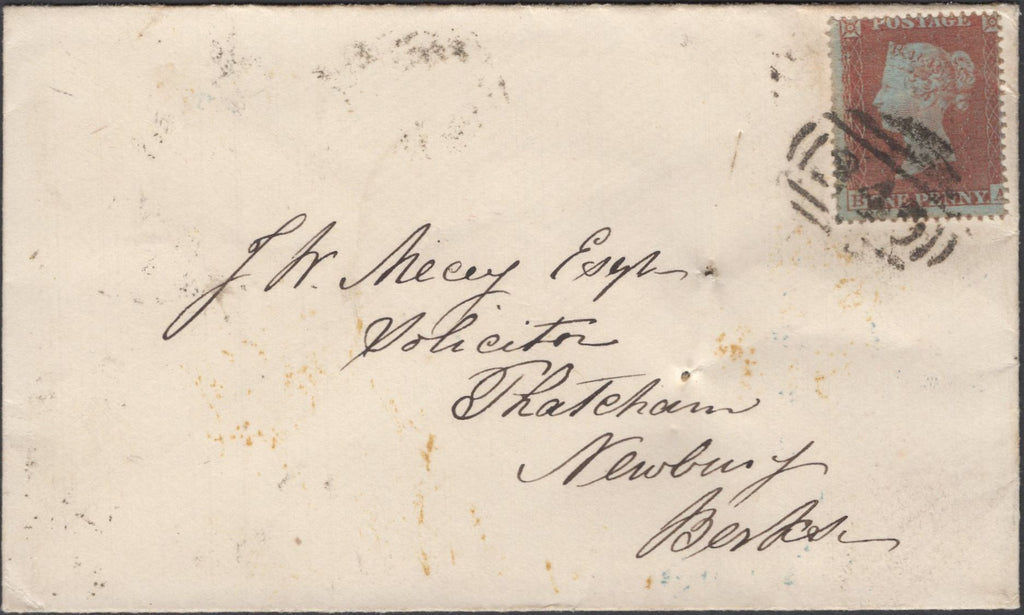 POSTAGE
B
ONE PENNY
A
J W. Mecey Esqr
Solicitor
Thatcham
Newbury
Berks